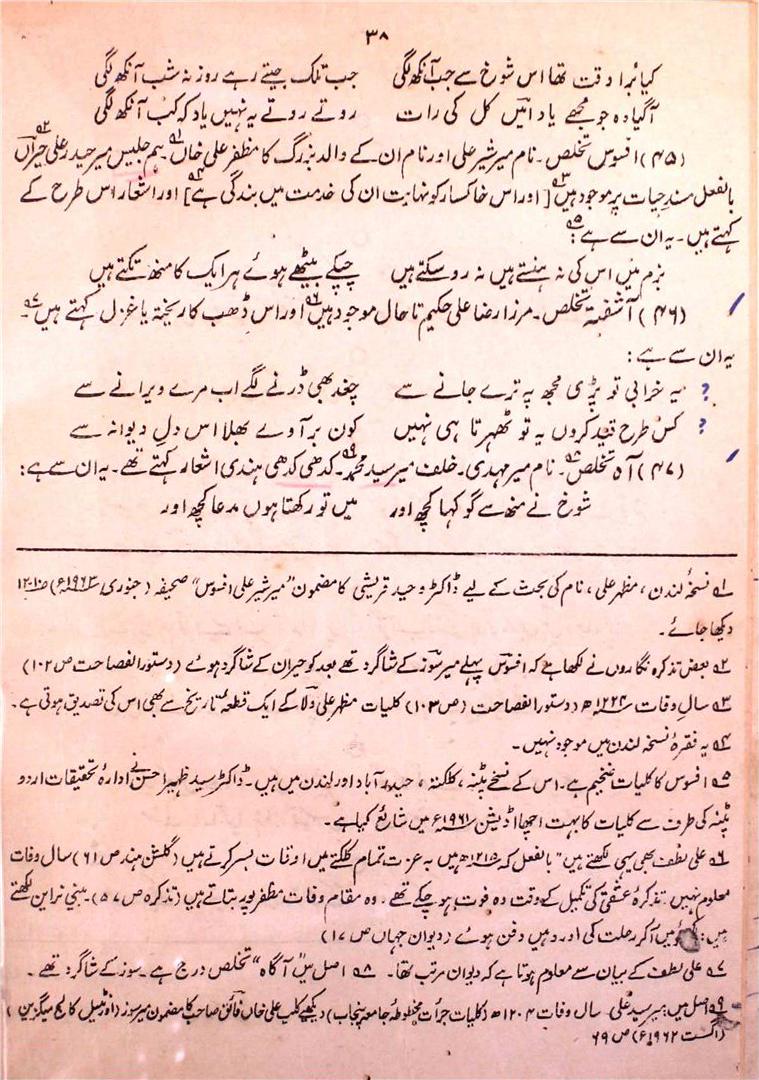 ۳۸
کیا بُرا وقت تھا اس شوخ سے جب آنکھ لگی جب تلک جیتے رہے روز نہ شب آنکھ لگی
آ گیا وہ جو مجھے یاد امیںؔ کل کی رات روتے روتے یہ نہیں یاد کہ کب آنکھ لگی
(۴۵) افسوس تخلص۔ نام میر شیر علی اور نام ان کے والد بزرگ کا مظفر علی خاں۱؎۔ ہم جلیس میر حیدر علی حیراں۲؎
بالفعل مسند حیات پر موجود ہیں۳؎ [اور اس خاکسار کو نہایت ان کی خدمت میں بندگی ہے۴؎] اور اشعار اس طرح کے
کہتے ہیں۔ یہ ان سے ہے۵؎:
بزم میں اس کی نہ ہنستے ہیں نہ رو سکتے ہیں چپکے بیٹھے ہوئے ہر ایک کا منھ تکتے ہیں
(۴۶) آشفتہ تخلص۔ مرزا رضا علی حکیم تا حال موجود ہیں۶؎ اور اس ڈھب کا ریختہ یا غزل کہتے ہیں۷؎۔
یہ ان سے ہے:
؟ یہ خرابی تو پڑی مجھ پہ ترے جانے سے چغد بھی ڈرنے لگے اب مرے ویرانے سے
؟ کس طرح قید کروں یہ تو ٹھہرتا ہی نہیں کون بر آوے بھلا اس دلِ دیوانہ سے
(۴۷) آہ تخلص۸؎۔ نام میر مہدی۔ خلف میر سید محمد۹؎۔ کدھی کدھی ہندی اشعار کہتے تھے۔ یہ ان سے ہے:
شوخ نے منھ سے گو کہا کچھ اور میں تو رکھتا ہوں مدعا کچھ اور
۱؎ نسخۂ لندن، مظہر علی، نام کی بحث کے لیے ڈاکٹر وحید قریشی کا مضمون "میر شیر علی افسوس" صحیفہ (جنوری ۱۹۶۳ء)
دیکھا جائے۔
۲؎ بعض تذکرہ نگاروں نے لکھا ہے کہ افسوس پہلے میر سوز کے شاگرد تھے بعد کو حیران کے شاگرد ہوئے (دستور الفصاحت ص ۱۰۲)
۳؎ سال وفات ۱۲۲۴ھ (دستور الفصاحت (ص ۱۰۳) کلیات مظہر علی ولا کے ایک قطعۂ تاریخ سے بھی اس کی تصدیق ہوتی ہے۔
۴؎ یہ فقرہ نسخہ لندن میں موجود نہیں۔
۵؎ افسوس کا کلیات ضخیم ہے۔ اس کے نسخے پٹنہ، کلکتہ، حیدرآباد اور لندن میں ہیں۔ ڈاکٹر سید ظہیر احسن نے ادارۂ تحقیقات اردو
پٹنہ کی طرف سے کلیات کا بہت اچھا اڈیشن ۱۹۶۱ء میں شائع کیا ہے۔
۶؎ علی لطف بھی یہی لکھتے ہیں "بالفعل کہ ۱۲۱۵ھ ہیں بہ عزت تمام کلکتے میں اوقات بسر کرتے ہیں (گلشن ہند ص ۶۱) سال وفات
معلوم نہیں۔ تذکرۂ عشقی کی تکمیل کے وقت وہ فوت ہو چکے تھے۔ وہ مقام وفات مظفر پور بتاتے ہیں (تذکرہ ص ۵۷)۔ بینی نراین لکھتے
ہیں: میں آ کر رحلت کی اور وہیں دفن ہوئے (دیوان جہاں ص ۱۷)
۷؎ علی لطف کے بیان سے معلوم ہوتا ہے کہ دیوان مرتب تھا۔ ۸؎ اصل میں "آگاہ" تخلص درج ہے۔ سوز کے شاگرد تھے۔
۹؎ اصل میں: میر سید علی۔ سال وفات ۱۲۰۴ھ (کلیات جرأت مخطوطہ جامعہ پنجاب) دیکھیے کلب علی خاں فائق صاحب کا مضمون میر سوز (اورنٹیل کالج میگزین)
(اگست ۱۹۶۲ء) ص ۶۹